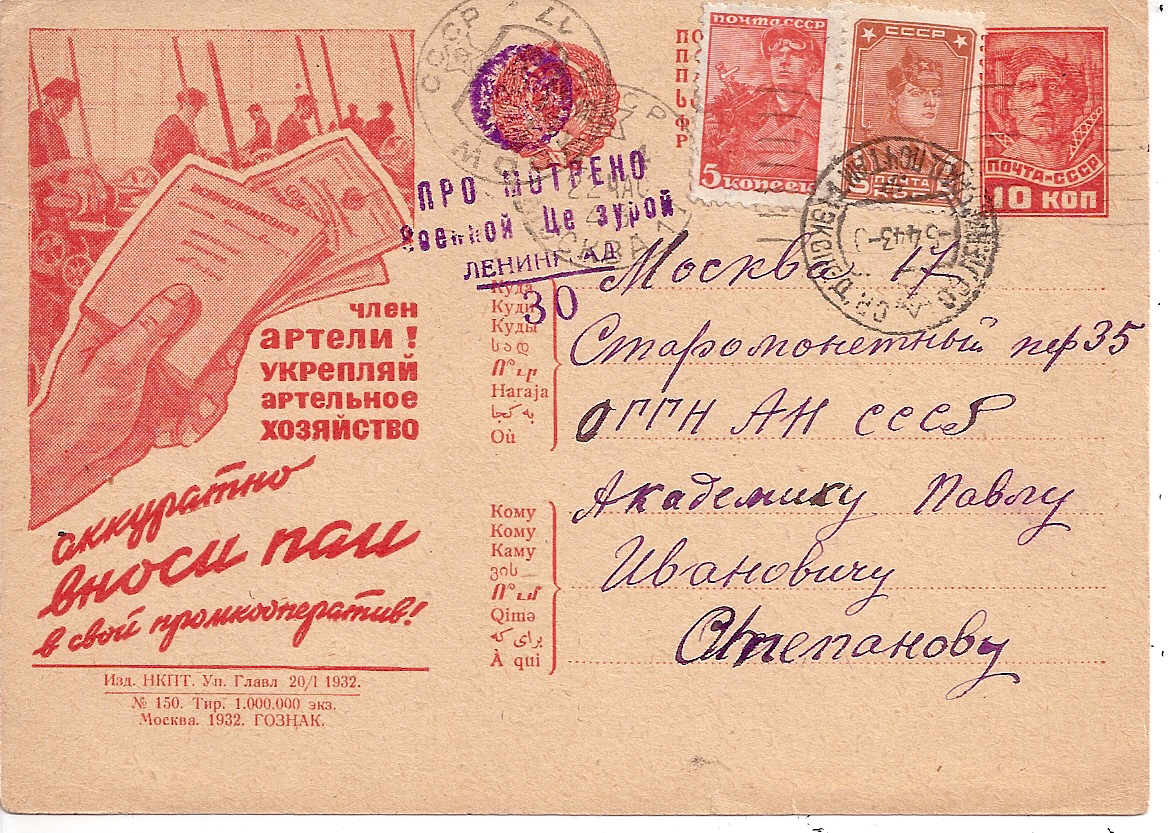 член
артели !
укрепляй
артельное
хозяйство
аккуратно
вноси паи
в свой промкооператив!
Изд. НКПТ. Уп. Главл 20/I 1932.
№ 150. Тир. 1.000.000 экз.
Москва. 1932. ГОЗНАК.
СССР
МОСКВА
ПРО МОТРЕНО
Военной Це зурой
ЛЕНИНГ АД
30
ПОЧТА СССР
5 копеек
СССР
ПОЧТА
ПОЧТА-СССР
10 КОП
-5443-
Куда
Куди
Куды
Haraja
به کجا
Où
Москва 17
Старомонетный пер 35
ОГГН АН СССР
Кому
Кому
Каму
ვის
Ո՞ւմ
Qimə
برای که
À qui
Академику Павлу
Ивановичу
Степанову